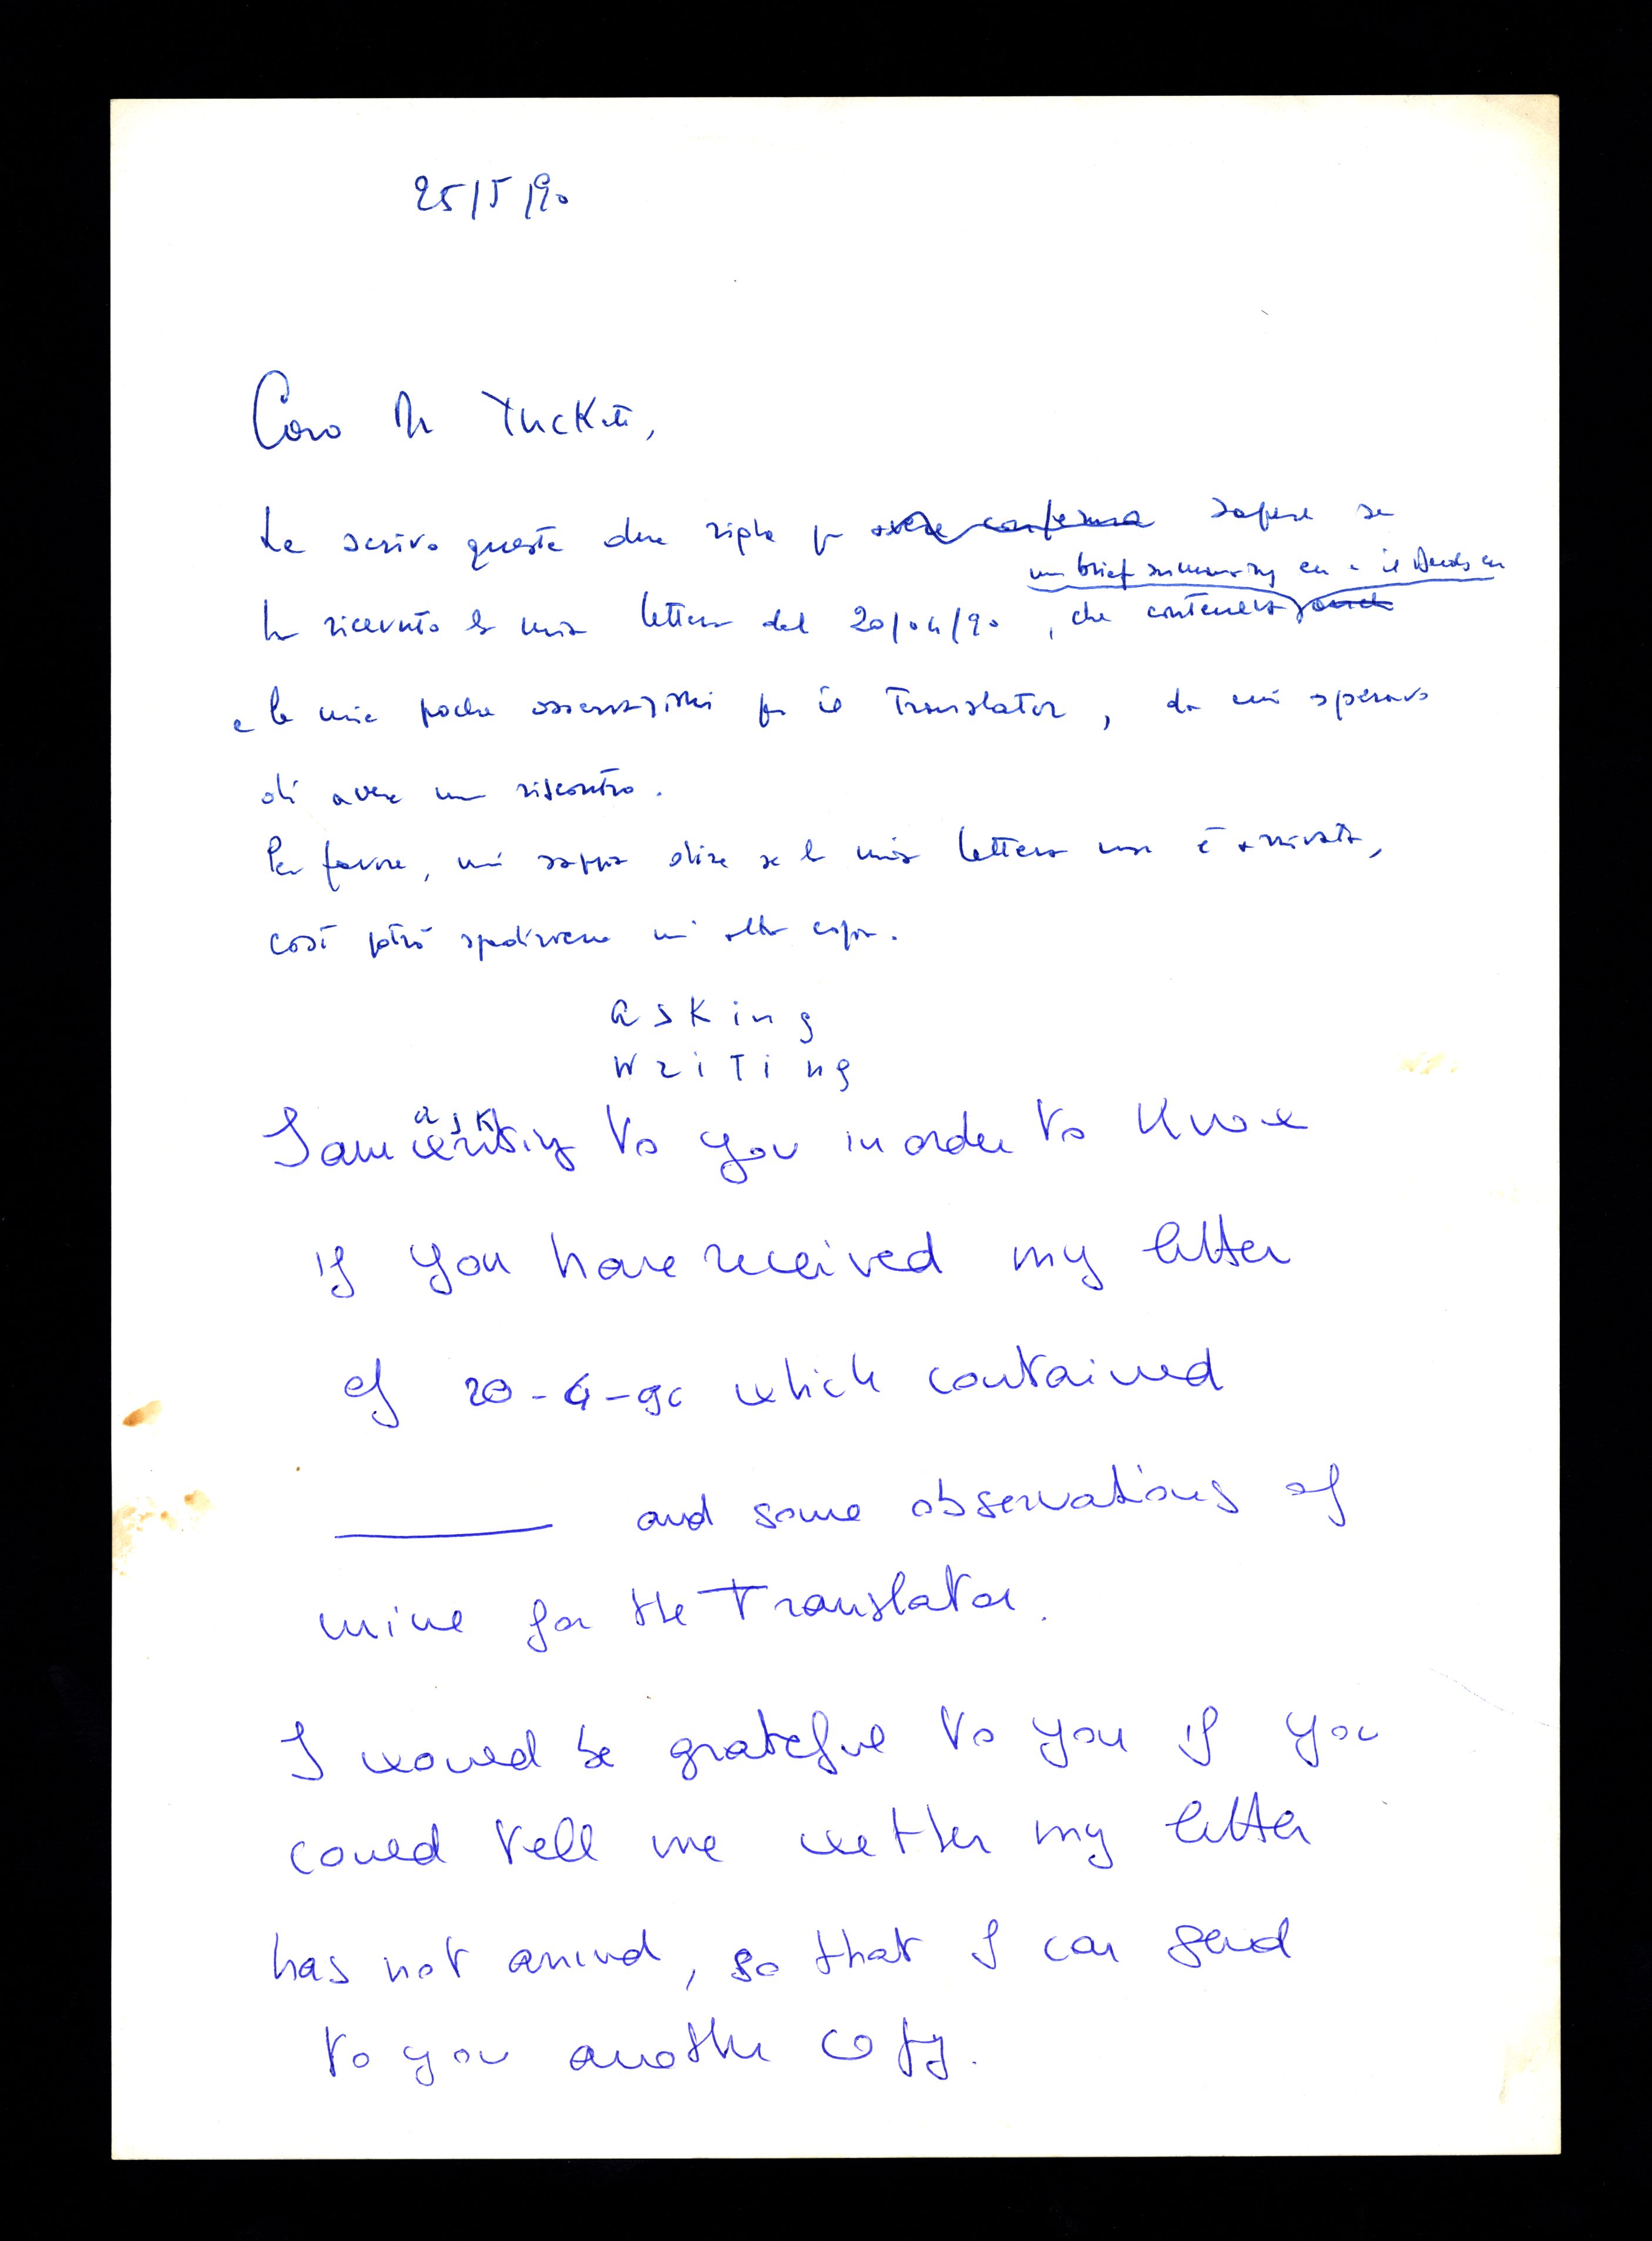 25/5/90
Caro Dr Tuckett,
Le scrivo queste due righe per avere conferma sapere se
un brief summary
ha ricevuto la mia lettera del 20/04/90, che conteneva
e le mie poche osservazioni per il Translator, da cui speravo
di avere un riscontro.
Per favore, mi sappia dire se la mia lettera non è arrivata,
così potrò spedirvene un'altra copia.
asking
writing
ask
I am writing to you in order to know
if you have received my letter
of 20-4-90 which contained
and some observations of
mine for the Translator.
I would be grateful to you if you
could tell me wether my letter
has not arrived, so that I can send
to you another copy.